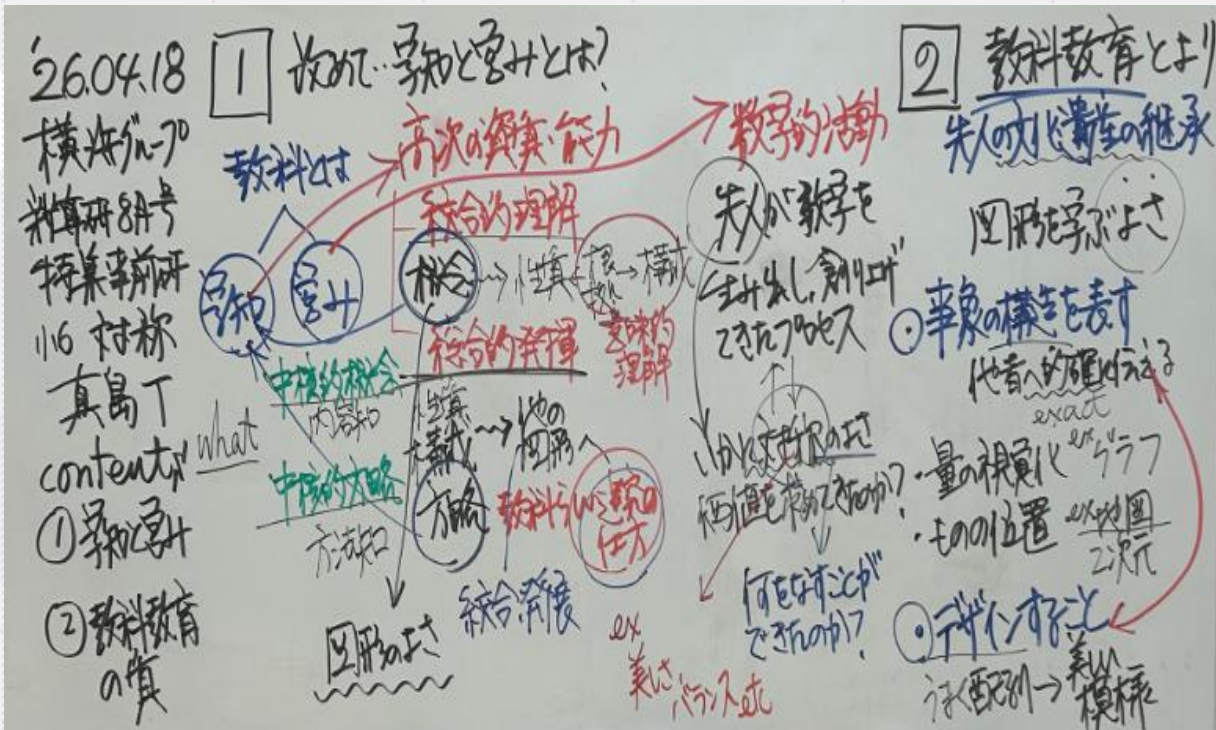 '26.04.18
横浜グループ
数算研8月号
特集事前研
小6 対称
真島T
contents
① 学知と営み
② 教科教育
の質
1 改めて‥学知と営みとは?
教科とは
学知
営み
what
高次の資質・能力
統合的理解
概念
性質
構成
意味的
理解
総合的発揮
中核的概念
内容知
中核的方略
方法知
性質
構成
他の
図形へ
方略
教科らしい
仕方
統合・発展
図形のよさ
数学的活動
先人が数学を
生み出し、創り上げ
てきたプロセス
価値を求めてきたのか?
何をなすことが
できたのか?
ex
美しさ、バランスetc
2 教科教育とより
先人の文化遺産の継承
図形を学ぶよさ
・事象の構造を表す
他者へ的確に伝える
exact
・量の視覚化 ex グラフ
・ものの位置 ex 地図
2次元
・デザインすること
うまく配列→美しい
模様